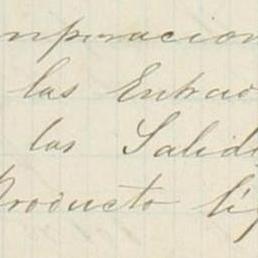 mparacion
las Entrad
las Salid
Producto lí